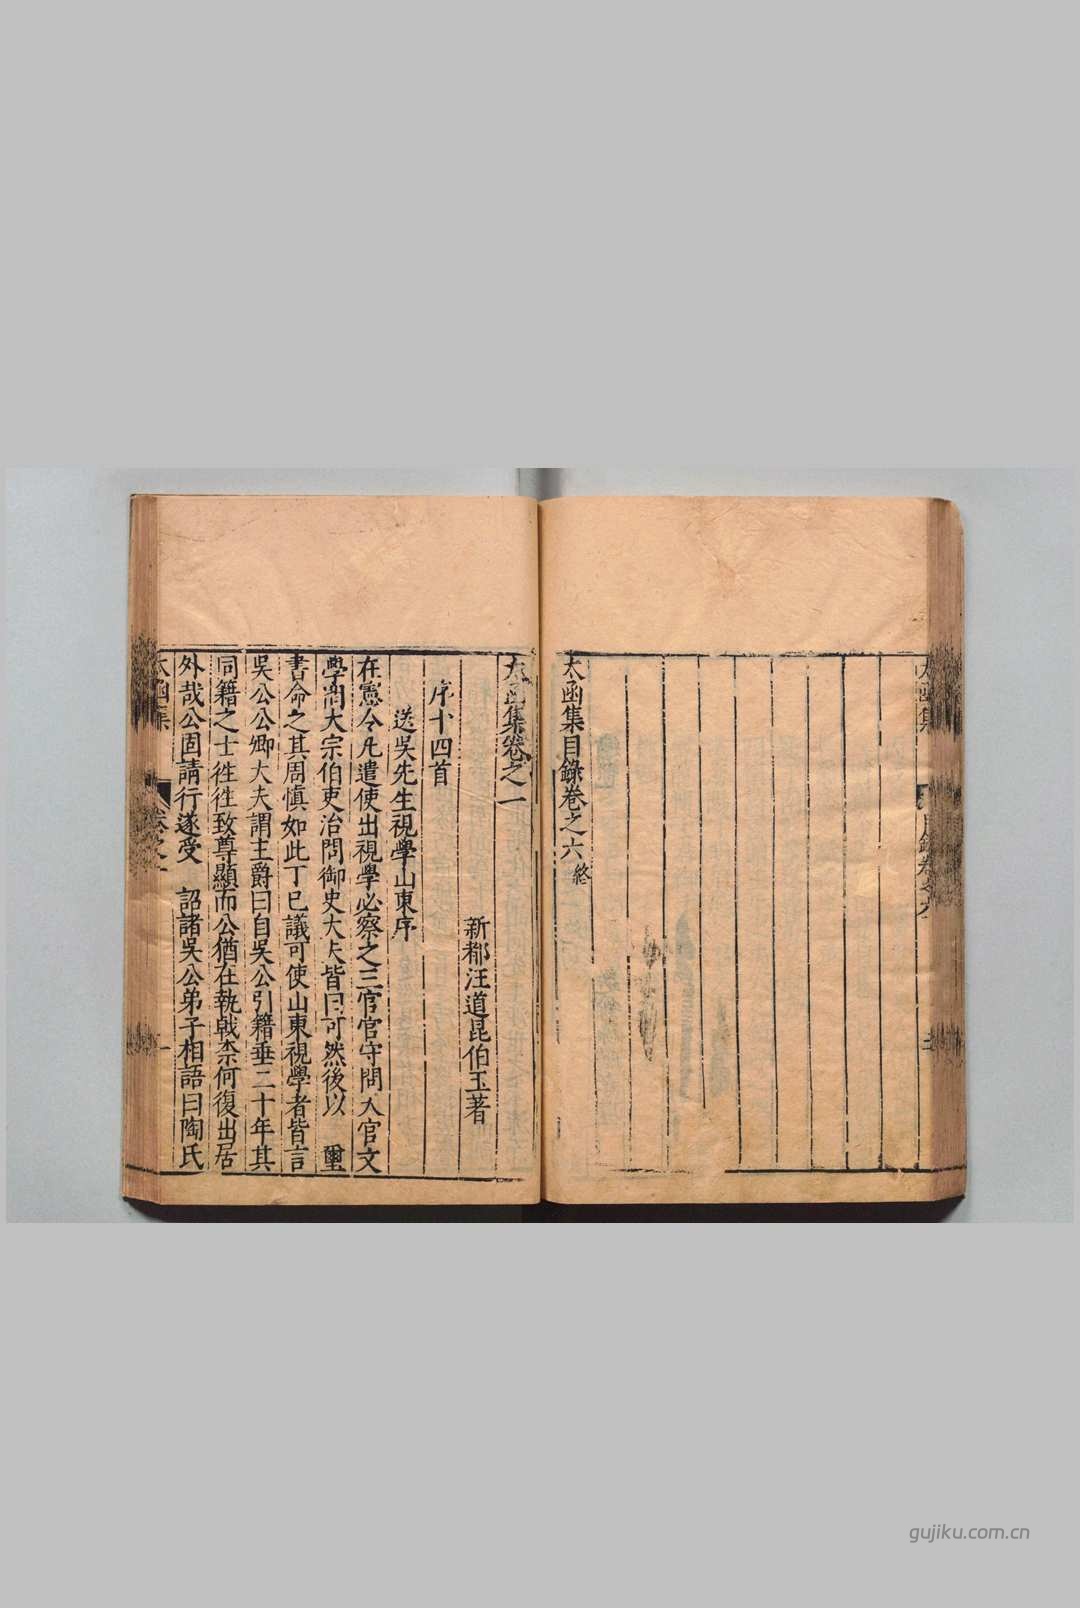 太函集目錄卷之六終
太函集卷之一
新都汪道昆伯玉著
序十四首
送吳先生視學山東序
在憲令凡遣使出視學必察之三官官守問天官文
學問大宗伯吏治問御史大夫皆曰可然後以 璽
書命之其周慎如此丁巳議可使山東視學者皆言
吳公公卿大夫謂主爵曰自吳公引籍垂二十年其
同籍之士徃徃致尊顯而公猶在執戟柰何復出居
外哉公固請行遂受 詔諸吳公弟子相語曰陶氏
太函集
卷之一
一
gujiku.com.cn